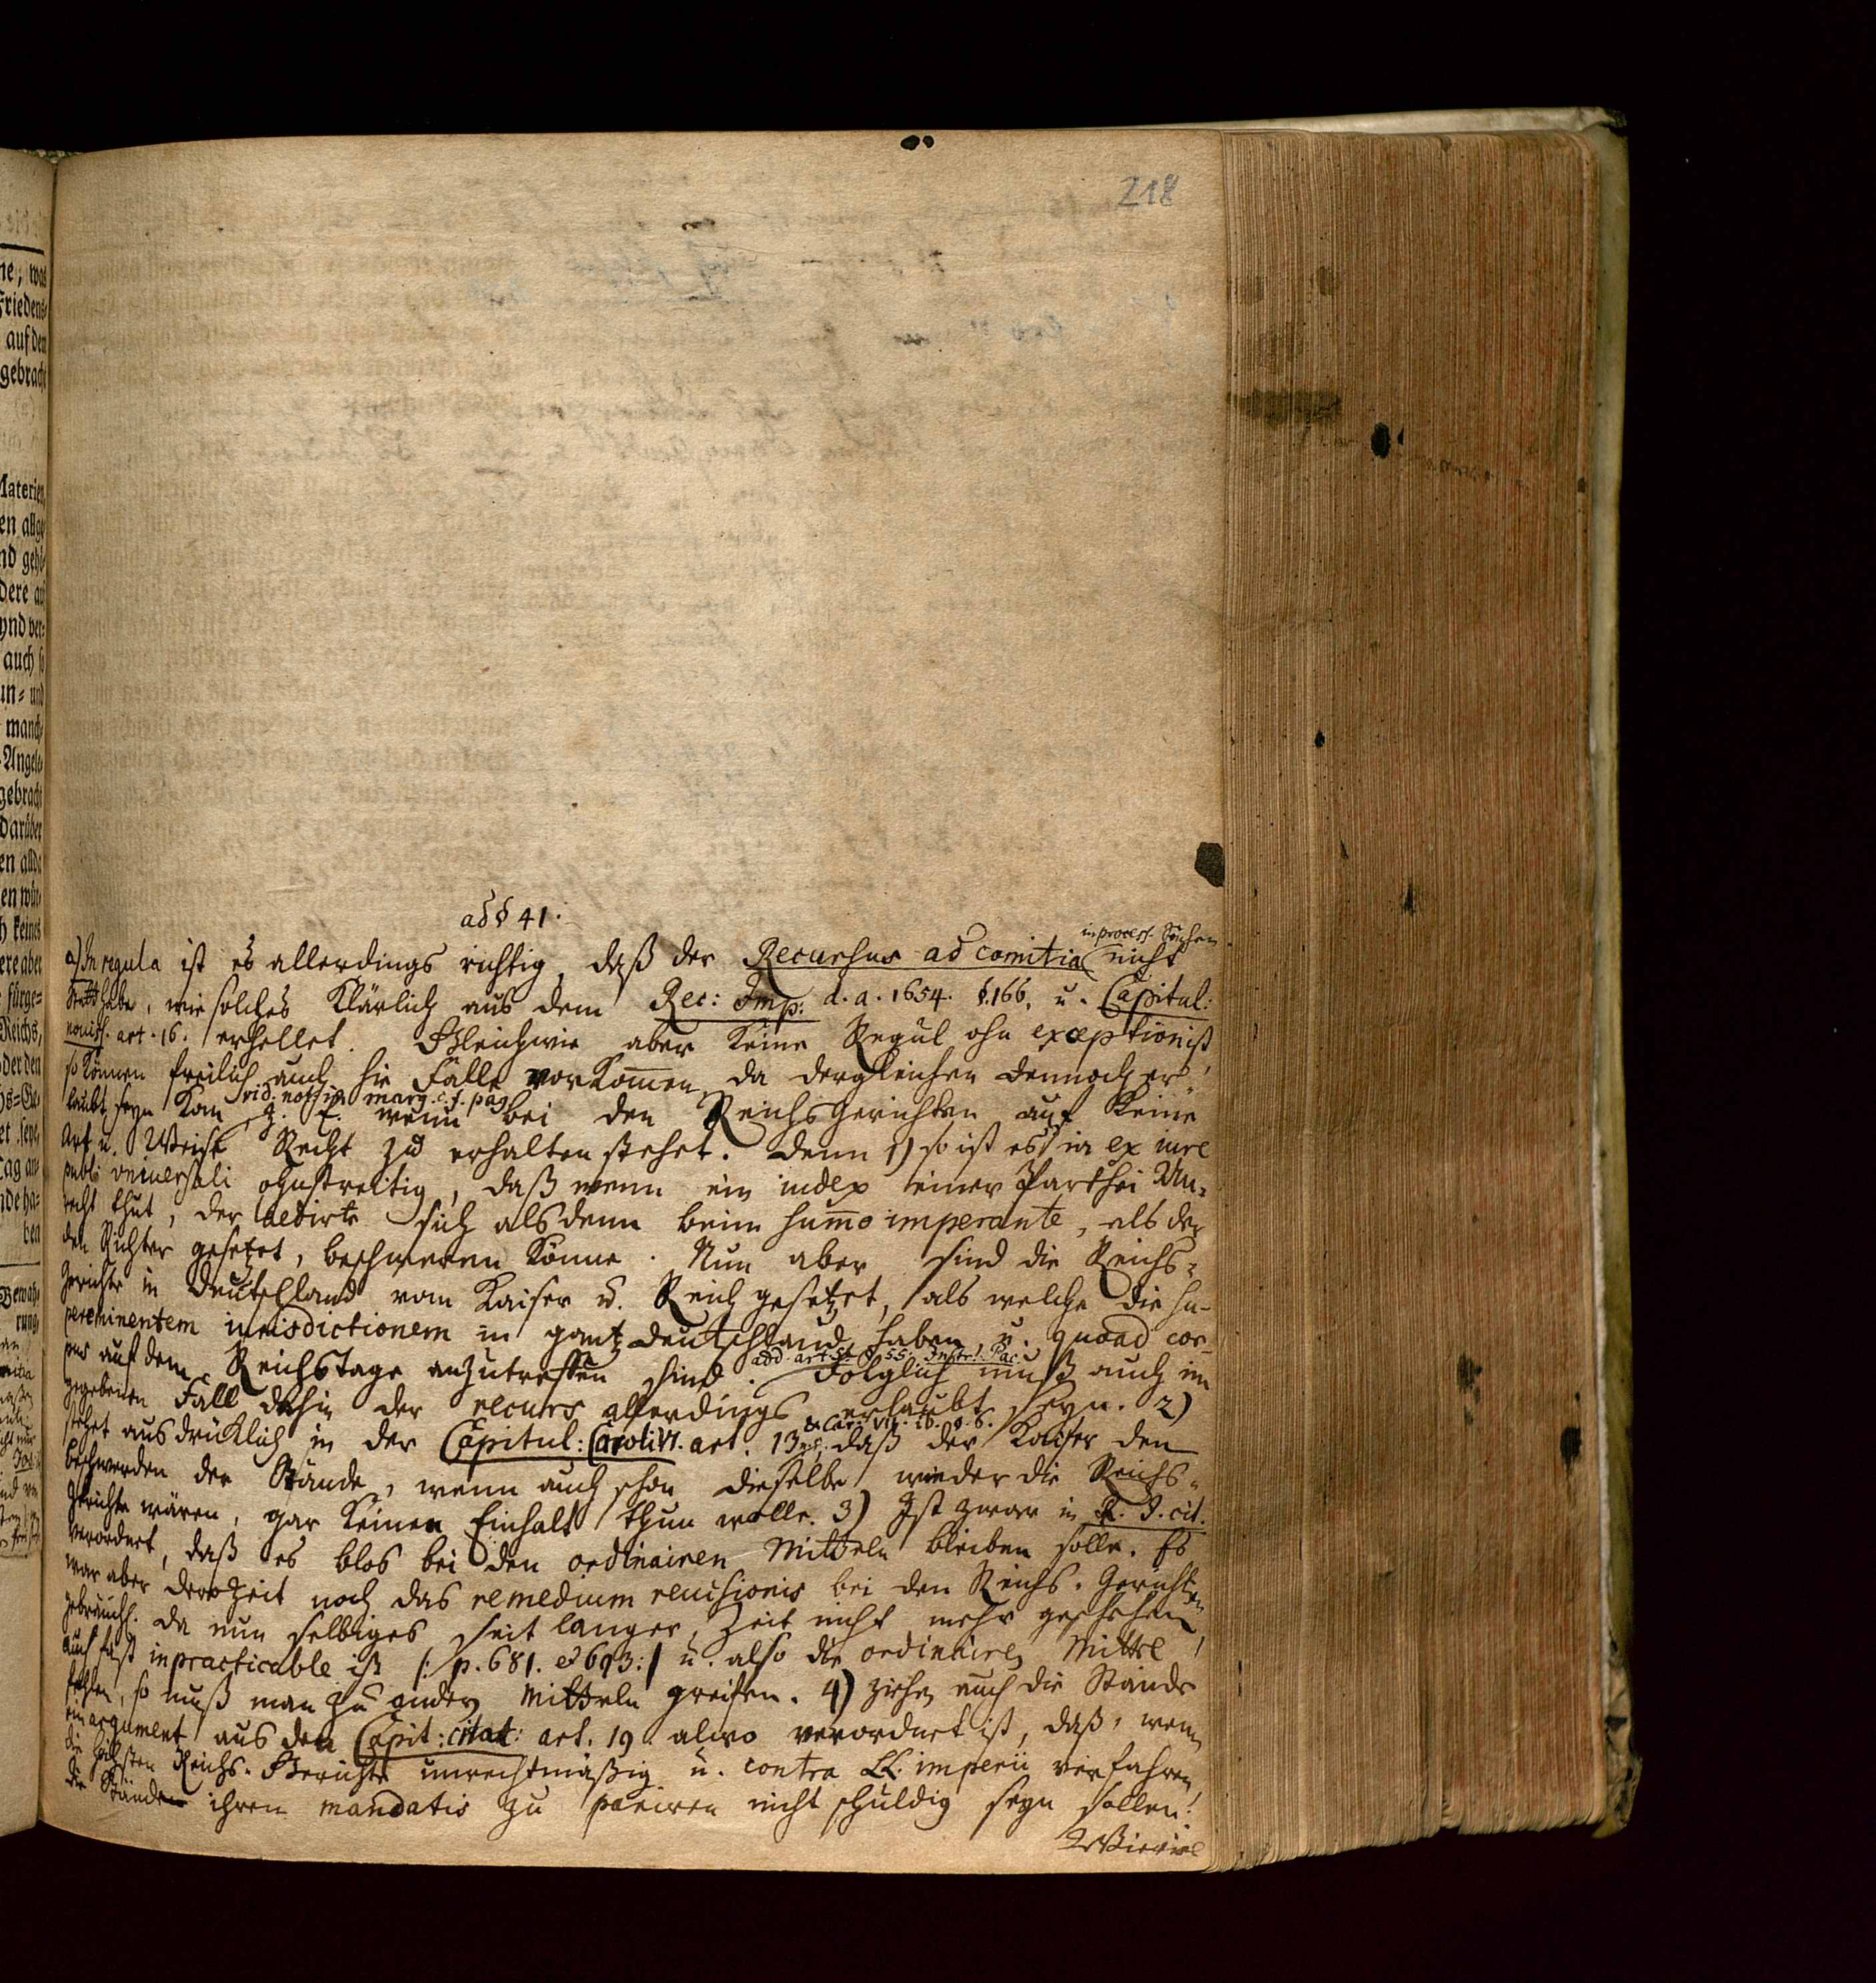 218
ad § 41.
a) In regula ist es allerdings richtig, daß der Recursus ad comitia in process. Sachen nicht
statt habe, wie solches klärlich aus dem Rec: Imp: d. a. 1654. §. 166. u. Capitul:
noviss. art. 16. erhellet. Gleichwie aber keine Regul ohn exception ist
so können freilich auch hie Fälle vorkommen, da dergleichen dennoch er-
laubt seyn kan, vid. not. in marg. c. f. pag z. E. wenn bei den Reichsgerichten auf keine
Art u. Weise Recht zu erhalten stehet. Denn 1) so ist es ja ex iure
publ. universali ohnstreitig, daß wenn ein iudex einer Parthei Un-
recht thut, der laedirte sich alsdenn beim summo imperante, als der
den Richter gesetzet, beschweren könne. Nun aber sind die Reichs-
Gerichte in Deutschland vom Kaiser u. Reich gesetzet, als welche die su-
pereminentem iurisdictionem in gantz Deutschland haben, u. quoad cor-
pus auf dem Reichstage anzutreffen sind. add. art. 5. §. 55. Instr. Pac. Folglich muß auch im
gegebenen Fall dahin der recurs allerdings erlaubt seyn. 2)
stehet ausdrücklich in der Capitul: Caroli VI. art. 13 & Car. VII. ib. §. 6. daß der Kaiser den
Beschwerden der Stände, wenn auch schon dieselbe wieder die Reichs-
Gerichte wären, gar keinen Einhalt thun wolle. 3) Ist zwar in R. I. cit.
verordnet, daß es blos bei den ordinairen Mitteln bleiben solle. Es
war aber derozeit noch das remedium revisionis bei den Reichs-Gerichten
gebräuchl. da nun selbiges seit langer Zeit nicht mehr geschehen,
auch fast inpracticable ist /: p. 681. et 693 :/ u. also die ordinaire Mittel
fehlen, so muß man zu andern Mitteln greifen. 4) ziehen auch die Stände
ein argument aus der Capit: citat: art. 19 alwo verordnet ist, daß, wenn
die höchsten Reichs-Gerichte unrechtmäßig u. contra LL. imperii verfahren,
die Stände ihren mandatis zu pariren nicht schuldig seyn sollen.